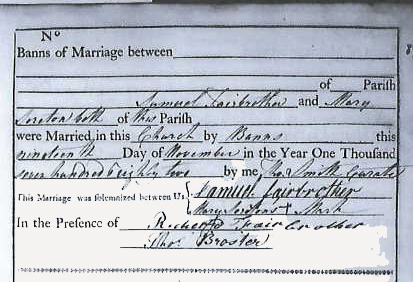 No
Banns of Marriage between
of Parish
Samuel Fairbrother and Mary
both of this Parish
were Married in this Church by Banns this
nineteenth Day of November in the Year One Thousand
seven hundred & eighty two by me Tho. Smith Curate
This Marriage was solemnized between Us Samuel Fairbrother
Mary + Mark
In the Presence of Richard Fairbrother
Thos. Broster